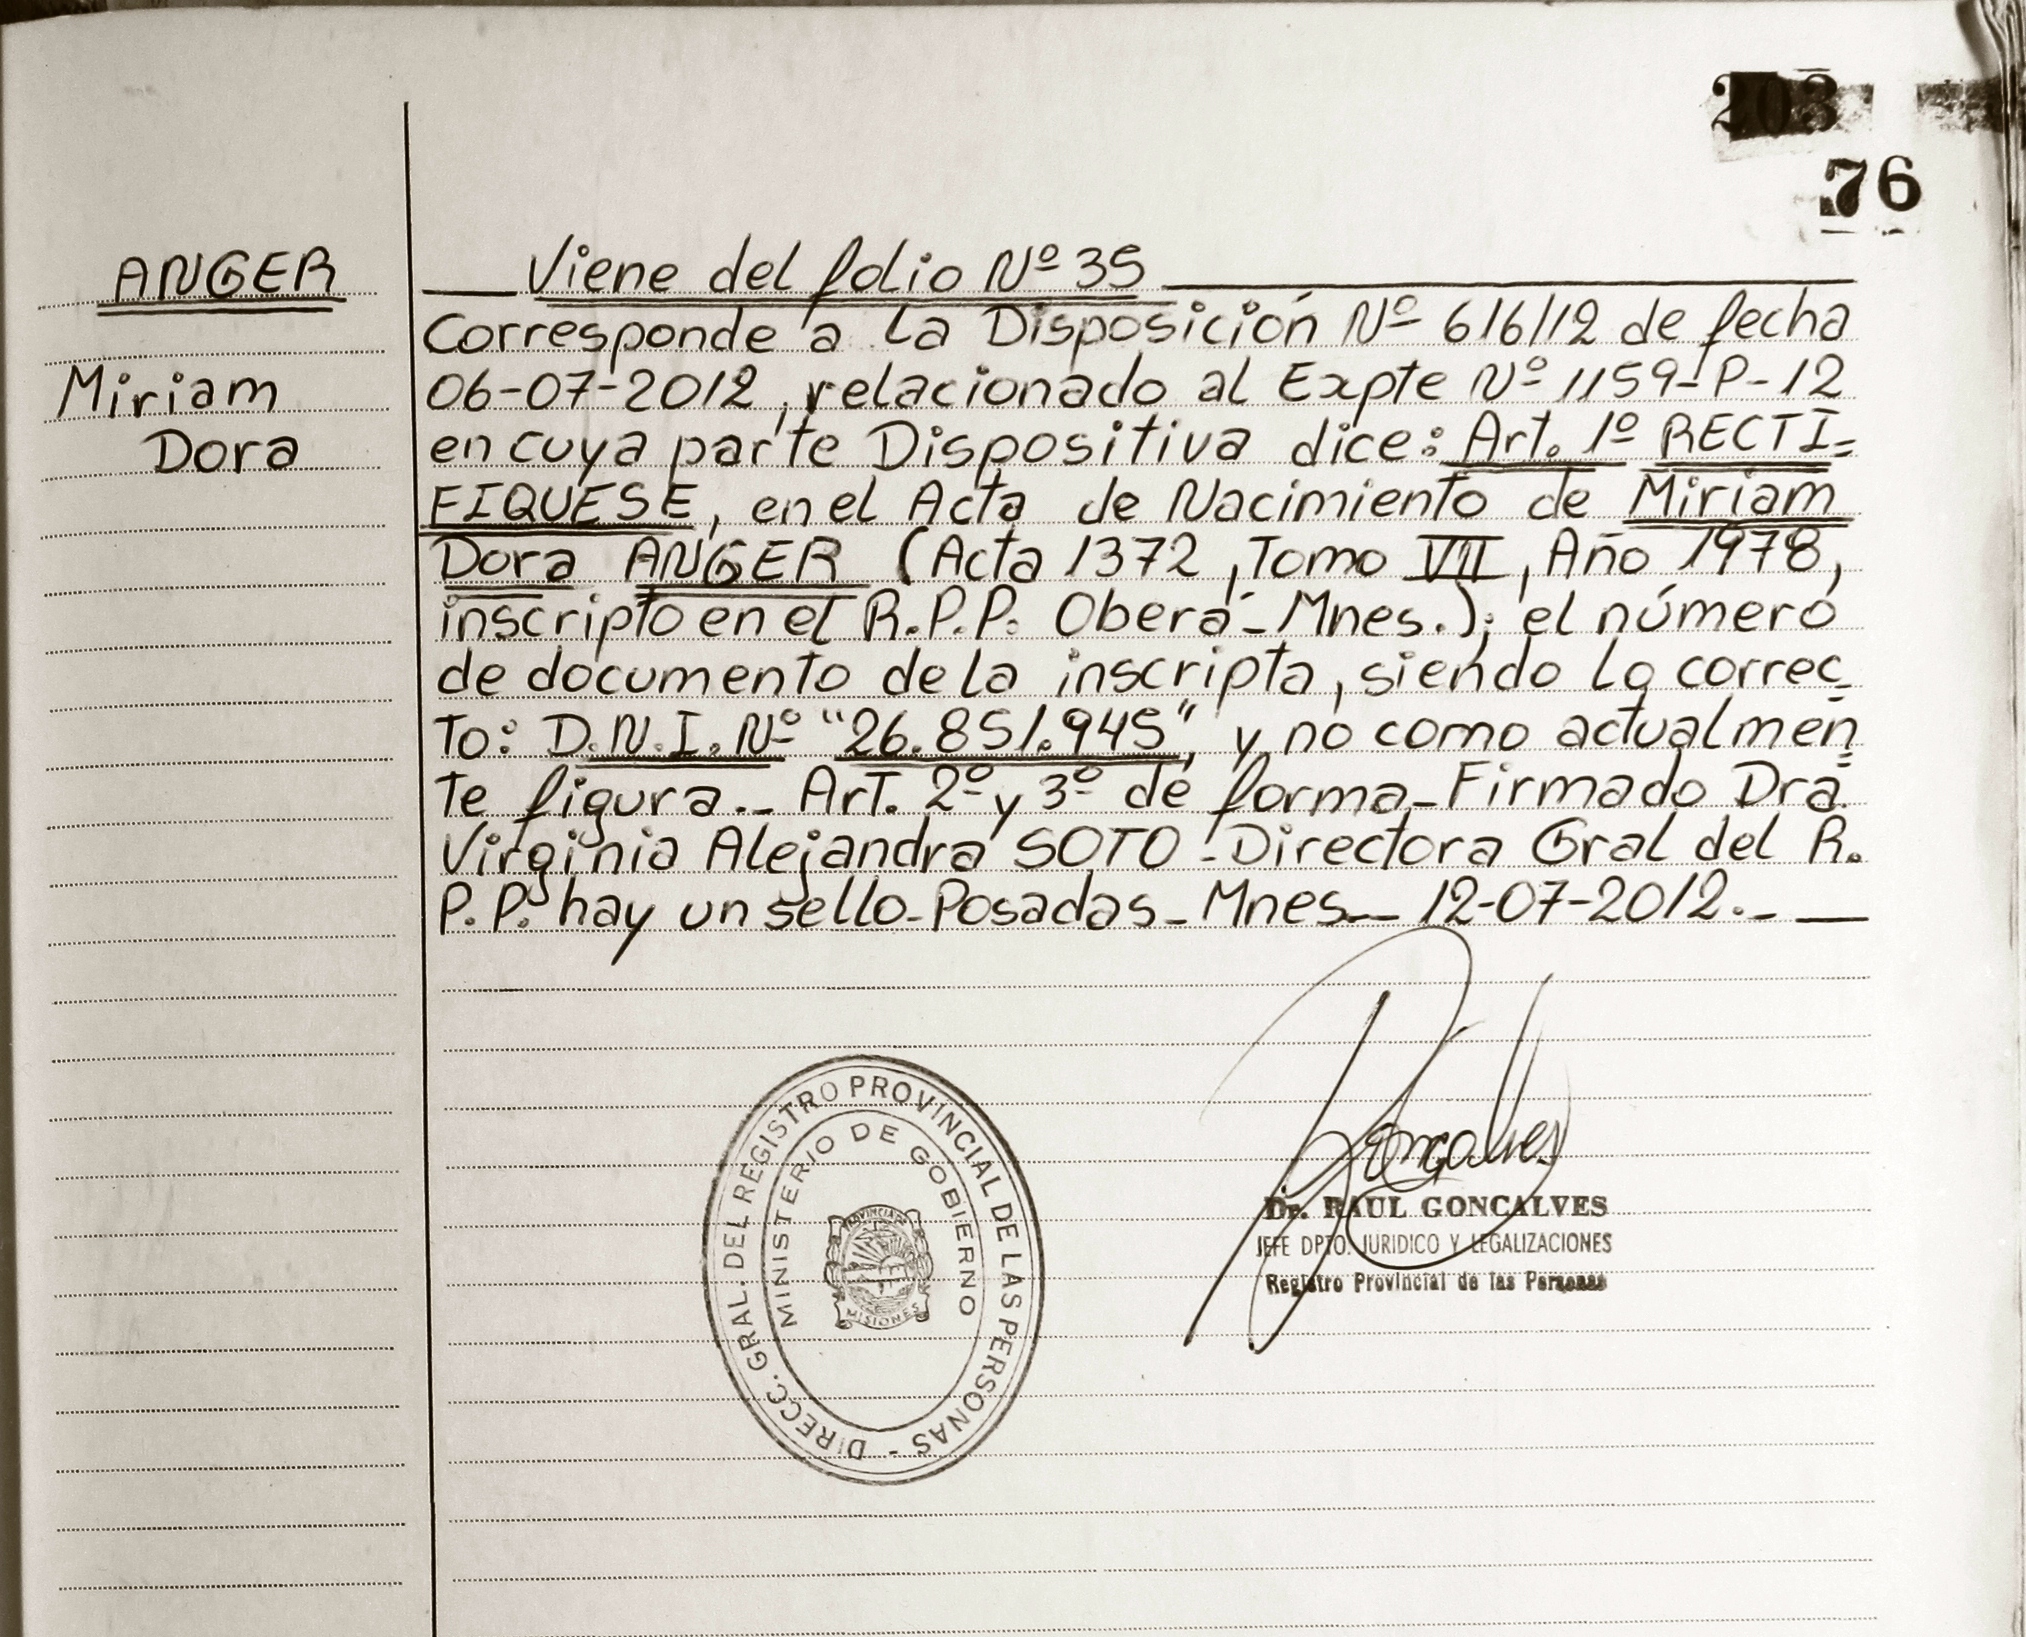 203
76
ANGER
Miriam
Dora
Viene del folio Nº 35
Corresponde a la Disposición Nº 616/12 de fecha
06-07-2012, relacionado al Expte Nº 1159-P-12
en cuya parte Dispositiva dice: Art. 1º RECTI=
FIQUESE, en el Acta de Nacimiento de Miriam
Dora ANGER (Acta 1372, Tomo VII, Año 1978,
inscripto en el R.P.P. Oberá-Mnes.); el número
de documento de la inscripta, siendo lo correc=
to: D.N.I. Nº "26.851.945", y no como actualmen=
te figura.- Art. 2º y 3º de forma-Firmado Dra.
Virginia Alejandra SOTO-Directora Gral del R.
P.P. hay un sello-Posadas-Mnes.- 12-07-2012.-
Goncalves
Dr. RAUL GONCALVES
JEFE DPTO. JURIDICO Y LEGALIZACIONES
Registro Provincial de las Personas
DIRECC. GRAL. DEL REGISTRO PROVINCIAL DE LAS PERSONAS -
MINISTERIO DE GOBIERNO
PROVINCIA DE
MISIONES